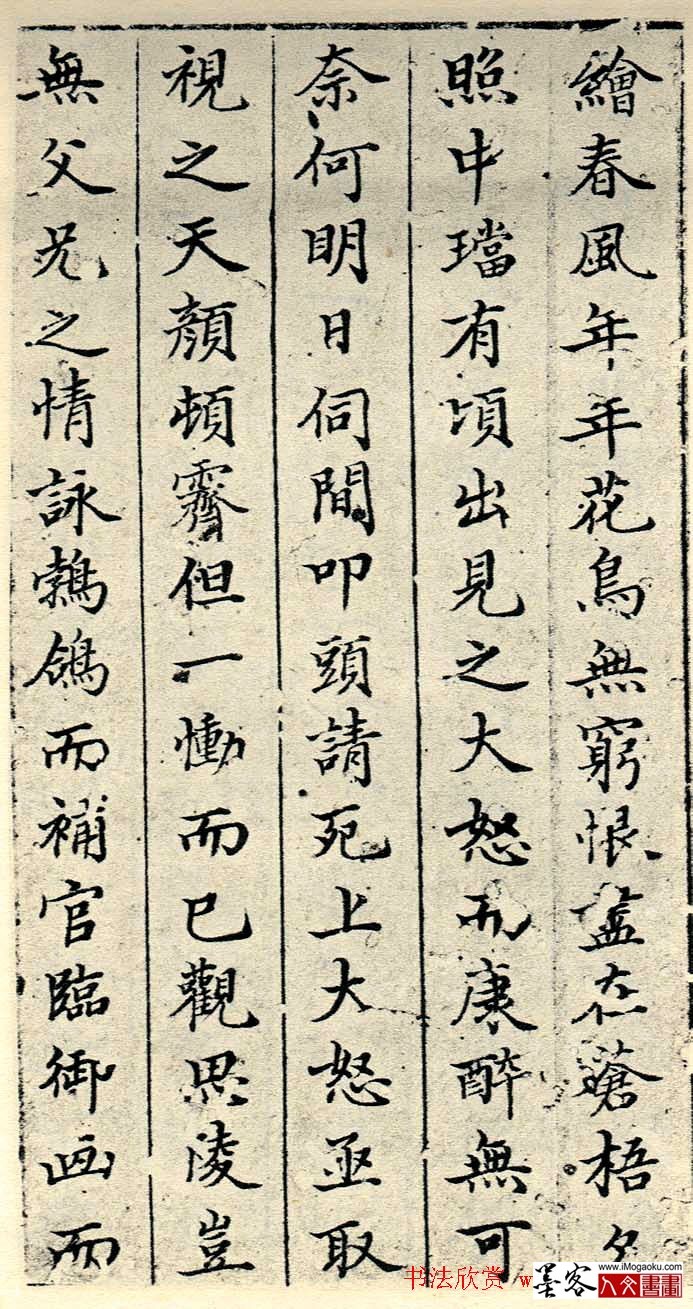 繪春風年年花鳥無窮恨盡在蒼梧夕
照中璫有頃出見之大怒而康醉無可
奈何明日伺間叩頭請死上大怒亟取
視之天顏頓霽但一慟而已觀思陵豈
無父兄之情詠鶺鴒而補官臨御画而
书法欣赏 w
墨客
www.iMogaoku.com
人文書畫